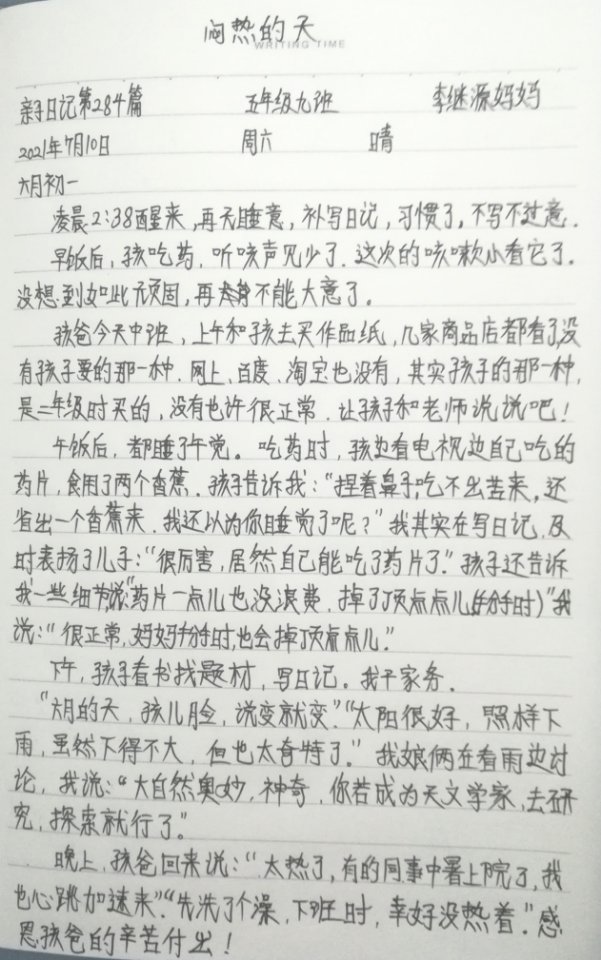 闷热的天
WRITING TIME
亲子日记第284篇 五年级九班 李继源妈妈
2021年7月10日 周六 晴
六月初一
凌晨2:38醒来,再无睡意,补写日记,习惯了,不写不过意.
早饭后,孩吃药,听咳声见少了.这次的咳嗽小看它了.
没想到如此顽固,再不能大意了。
孩爸今天中班,上午和孩去买作品纸,几家商品店都看了,没
有孩子要的那一种.网上、百度、淘宝也没有,其实孩子的那一种,
是二年级时买的,没有也许很正常.让孩子和老师说说吧!
午饭后,都睡了午觉。吃药时,孩边看电视边自己吃的
药片,食用了两个香蕉.孩子告诉我:“捏着鼻子,吃不出苦来,还
省出一个香蕉来.我还以为你睡觉了呢?”我其实在写日记,及
时表扬了儿子:“很厉害,居然自己能吃了药片了."孩子还告诉
我一些细节说:"药片一点儿也没浪费,掉了顶点点儿(分时)”我
说:“很正常,妈妈分时,也会掉顶点点儿."
下午,孩子看书找题材,写日记。我干家务.
“六月的天,孩儿脸,说变就变.”“太阳很好,照样下
雨,虽然下得不大,但也太奇特了."我娘俩在看雨边讨
论,我说:“大自然奥妙,神奇,你若成为天文学家,去研
究,探索就行了”
晚上,孩爸回来说:“太热了,有的同事中暑上院了,我
也心跳加速来”“先洗了个澡,下班时,幸好没热着."感
恩孩爸的辛苦付出!